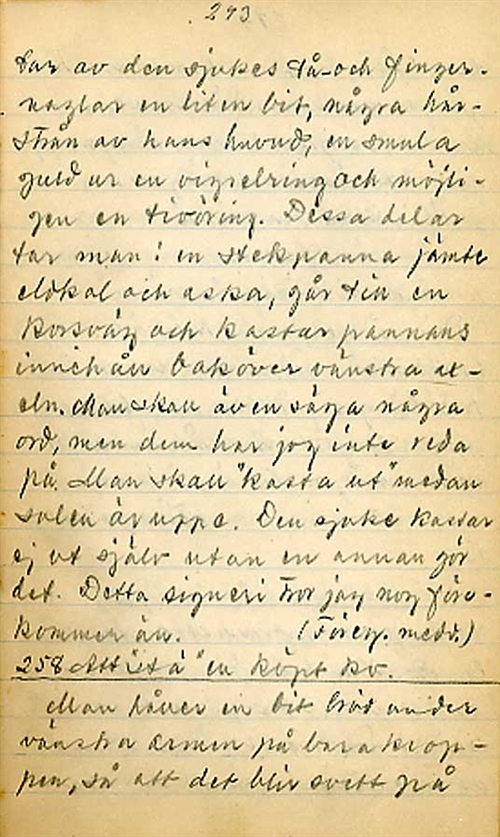 293
tar av den sjukes tå- och finger-
naglar en liten bit, några hår-
strån av hans huvud, en smula
guld ur en vigselring och möjli-
gen en tioöring. Dessa delar
tar man i en stekpanna jämte
eldkol och aska, går till en
korsväg och kastar pannans
innehåll baköver vänstra ax-
eln. Man skall även säga några
ord, men dem har jag inte reda
på. Man skall "kasta ut" medan
solen är uppe. Den sjuke kastar
ej ut själv utan en annan gör
det. Detta signeri tror jag nog före-
kommer än. (Föreg. medd.)
258 Att "stå" en köpt ko.
Man håller en bit bröd under
vänstra armen på bara krop-
pen, så att det blir svett på